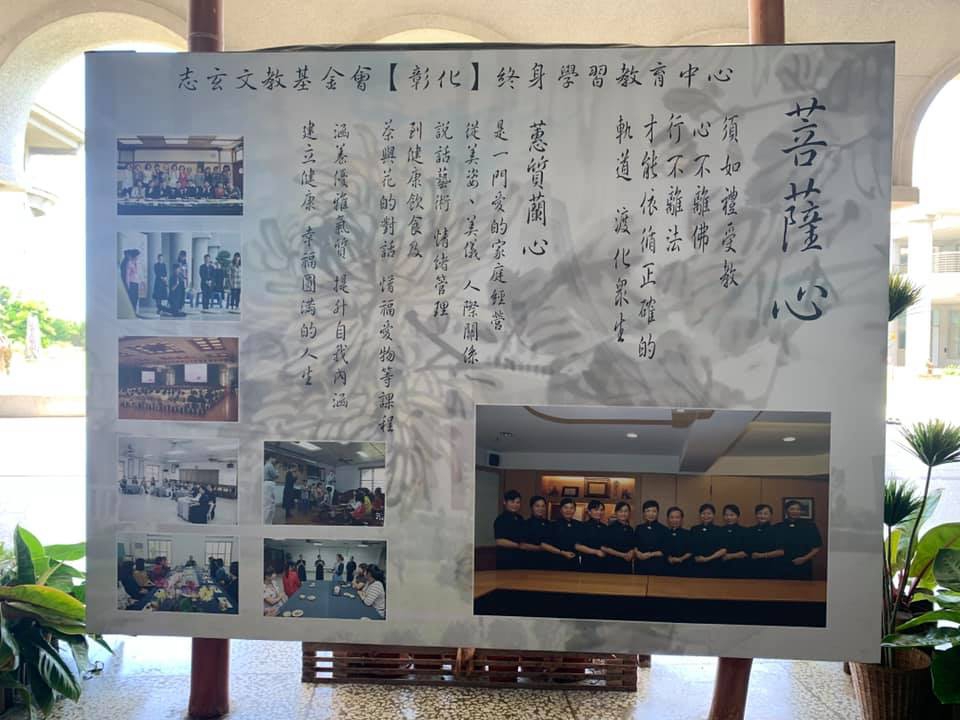 志玄文教基金會【彰化】終身學習教育中心
菩薩心
須如禮受教
心不離佛
行不離法
才能依循正確的
軌道 渡化眾生
蕙質蘭心
是一門愛的家庭經營
從美姿、美儀 人際關係
說話藝術 情緒管理
到健康飲食及
茶與花的對話 惜福愛物等課程
涵養優雅氣質 提升自我內涵
建立健康 幸福圓滿的人生